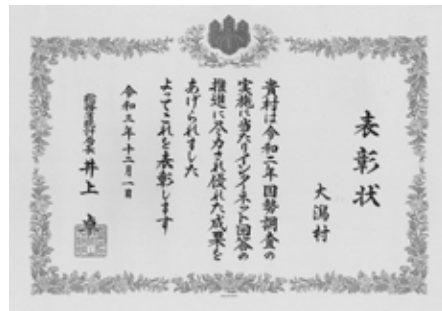 表彰状
大潟村
貴村は令和二年国勢調査の
実施に当たりインターネット回答の
推進に尽力され優れた成果を
あげられました
よってこれを表彰します
令和三年十二月一日
総務省統計局長 井上 卓